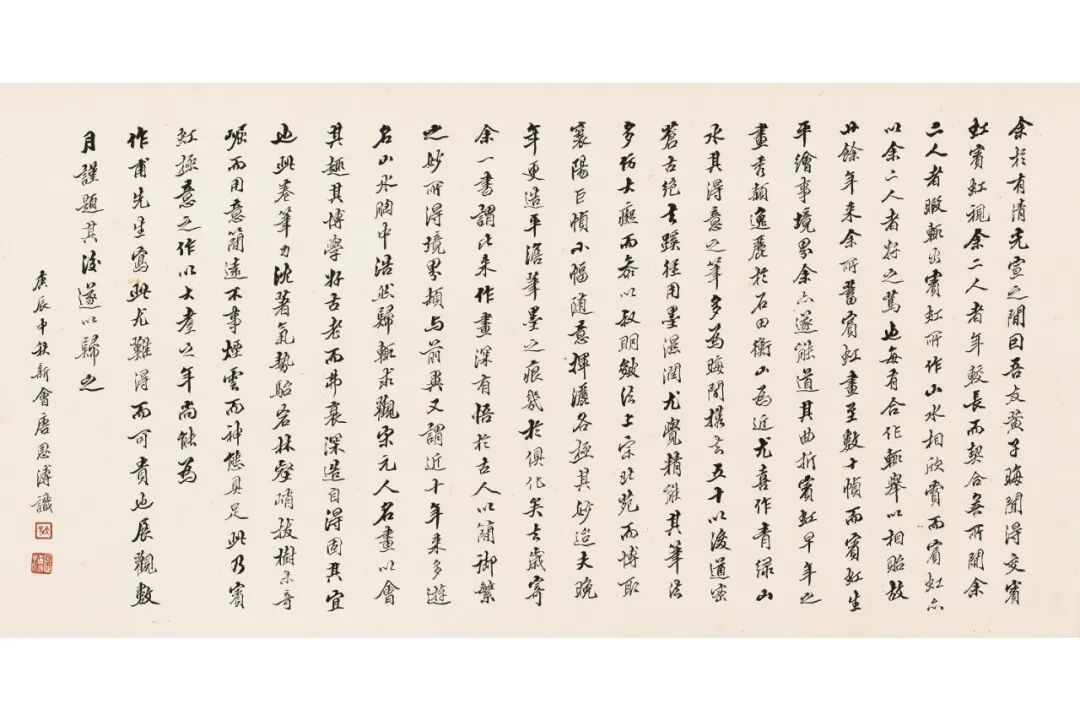 余於有清光宣之間因吾友黃子晦聞得交賓
虹賓虹視余二人者年較長而契合無所間余
二人者暇輒出賓虹所作山水相欣賞而賓虹亦
以余二人者好之篤也每有合作輒舉以相貽故
廿餘年來余所蓄賓虹畫至數十幀而賓虹生
平繪事境界余亦遂能道其曲折賓虹早年之
畫秀穎逸麗於石田衡山為近尤喜作青綠山
水其得意之筆多為晦聞攫去五十以後遒密
蒼古絕去蹊徑用墨濕潤尤覺精能其筆法
多仿大癡而參以叔明皴法上宗北苑而博取
襄陽巨幀小幅隨意揮灑各極其妙迨夫晚
年更造平澹筆墨之痕幾於俱化矣去歲寄
余一書謂比來作畫深有悟於古人以簡御繁
之妙所得境界頗與前異又謂近十年來多遊
名山水胸中浩然歸輒求觀宋元人名畫以會
其趣其博學好古老而弗衰深造自得固其宜
也此卷筆力沈著氣勢駘宕林壑峭拔樹石奇
崛而用意簡遠不事煙雲而神態具足此乃賓
虹極意之作以大耋之年尚能為
作甫先生寫此尤難得而可貴也展觀數
月謹題其後遂以歸之
庚辰中秋新會唐恩溥識